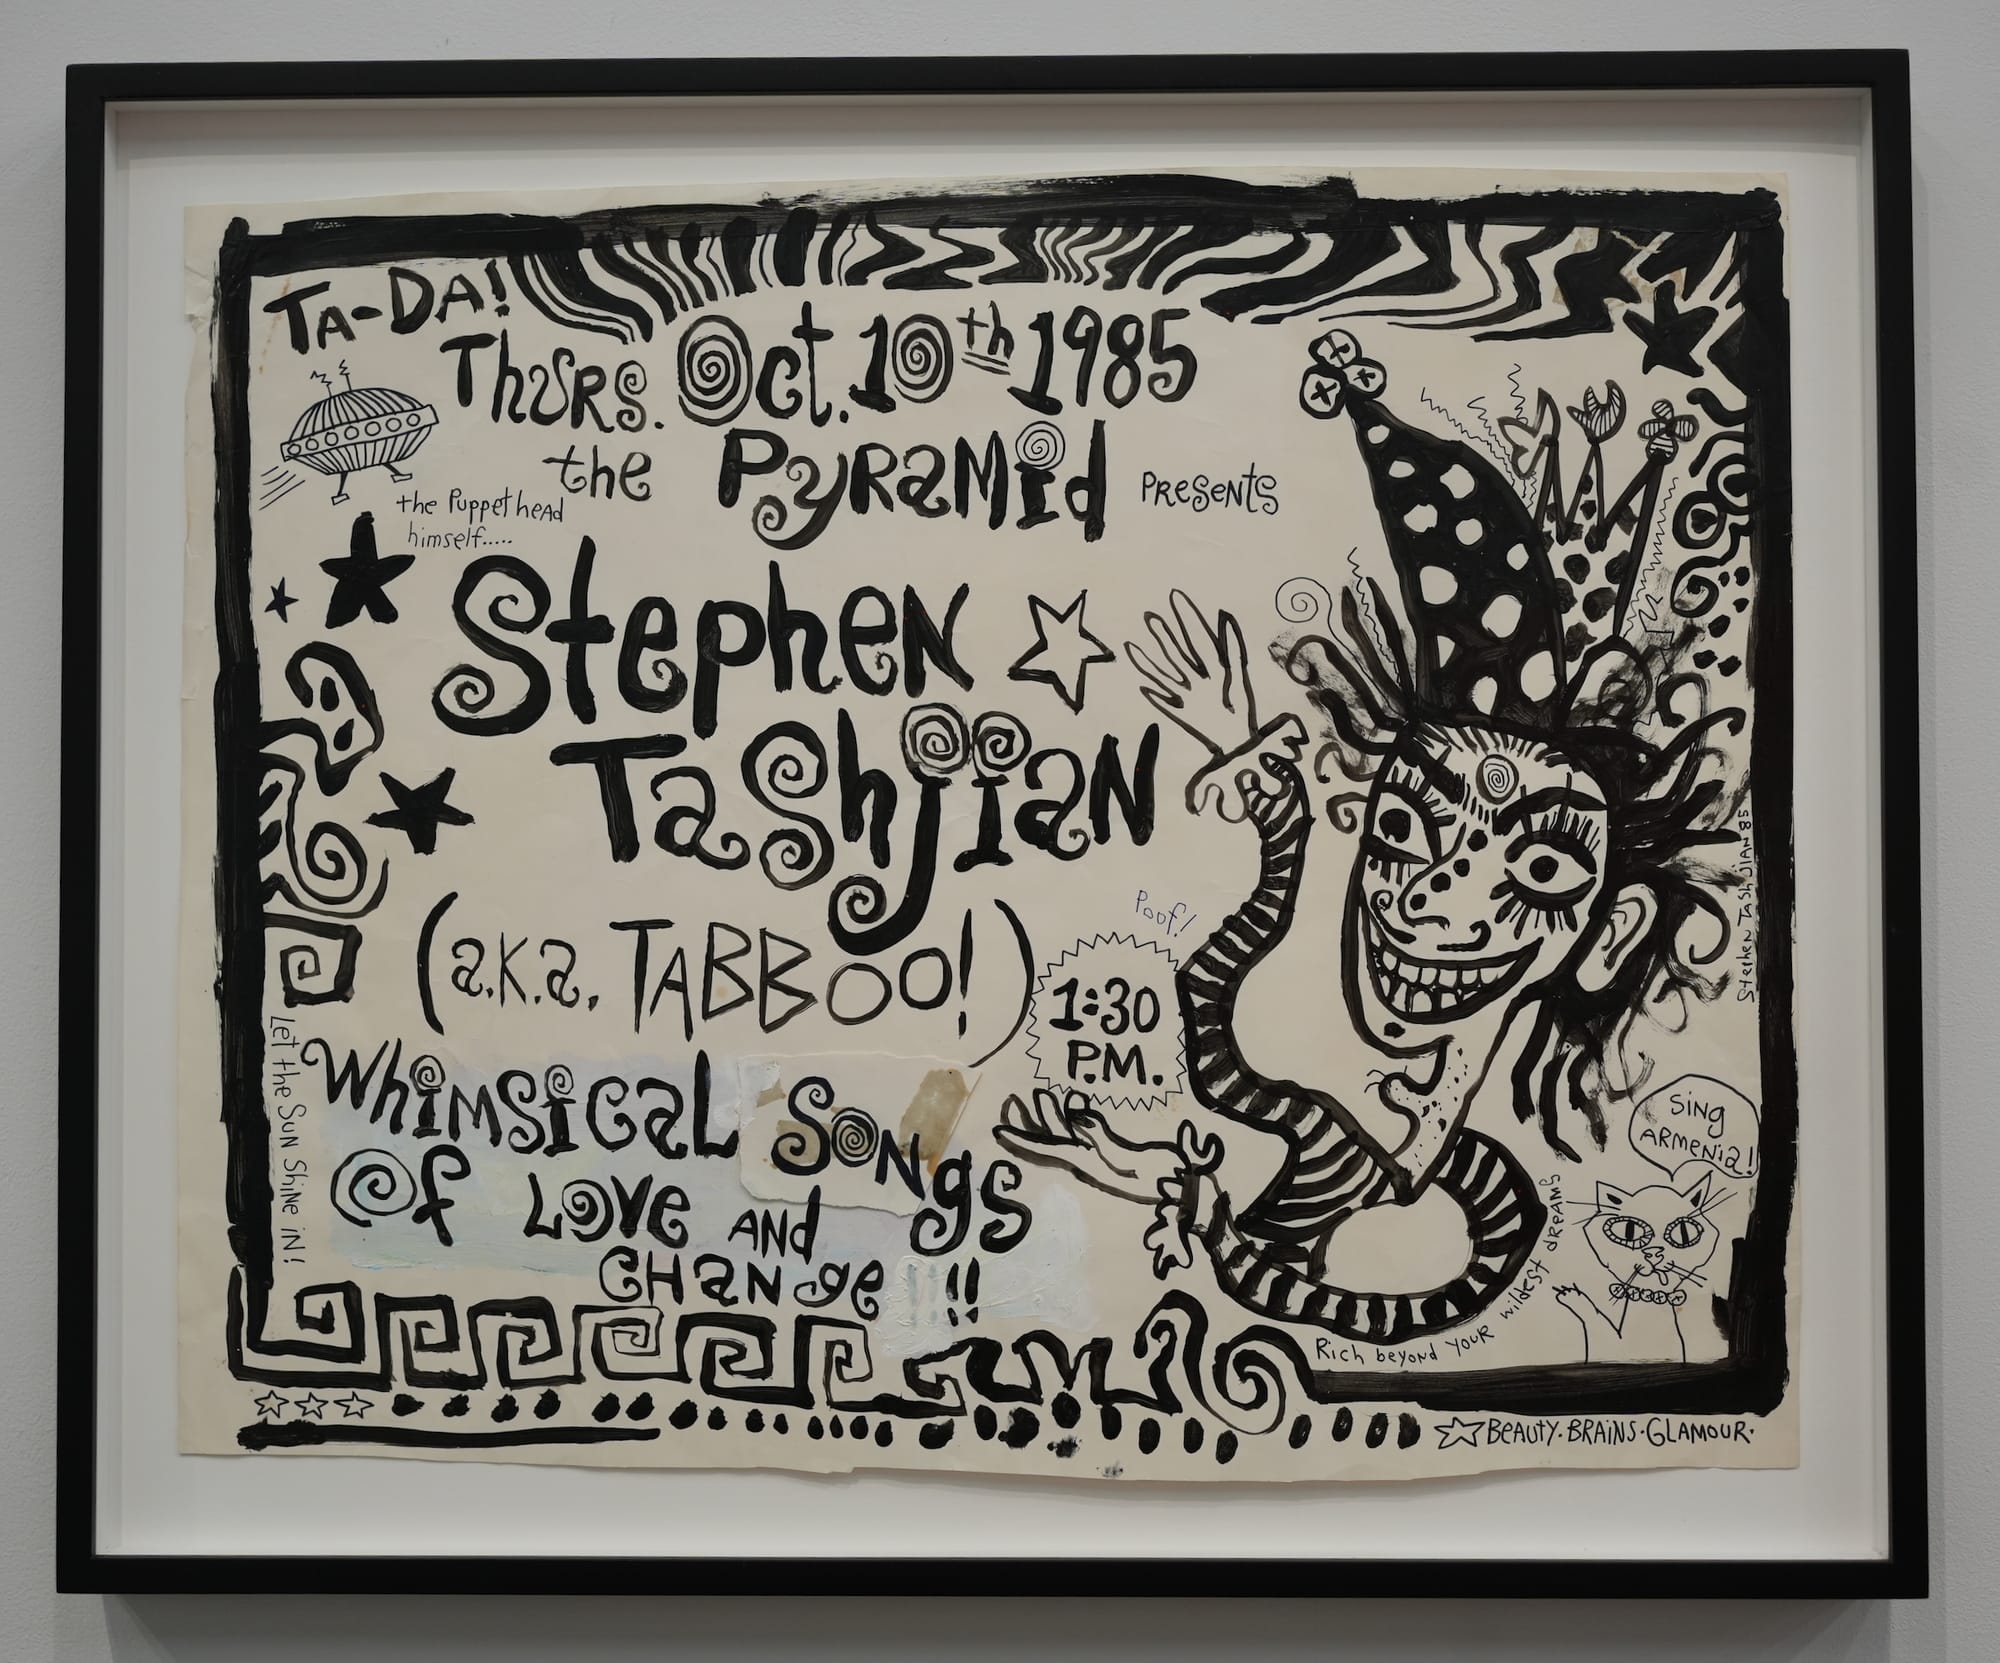 TA-DA!
Thurs. Oct. 10th 1985
the Pyramid PRESENTS
the Puppet head
himself.....
Stephen
Tashjian
(a.k.a. TABBOO!)
Poof!
1:30
P.M.
Whimsical Songs
of Love AND
CHANge !!!!
Let the Sun Shine iN!
Stephen Tashjian 85
Sing
ARMENia!
Rich beyond your wildest dreams
BEAUTY · BRAiNS · GLAMOUR ·